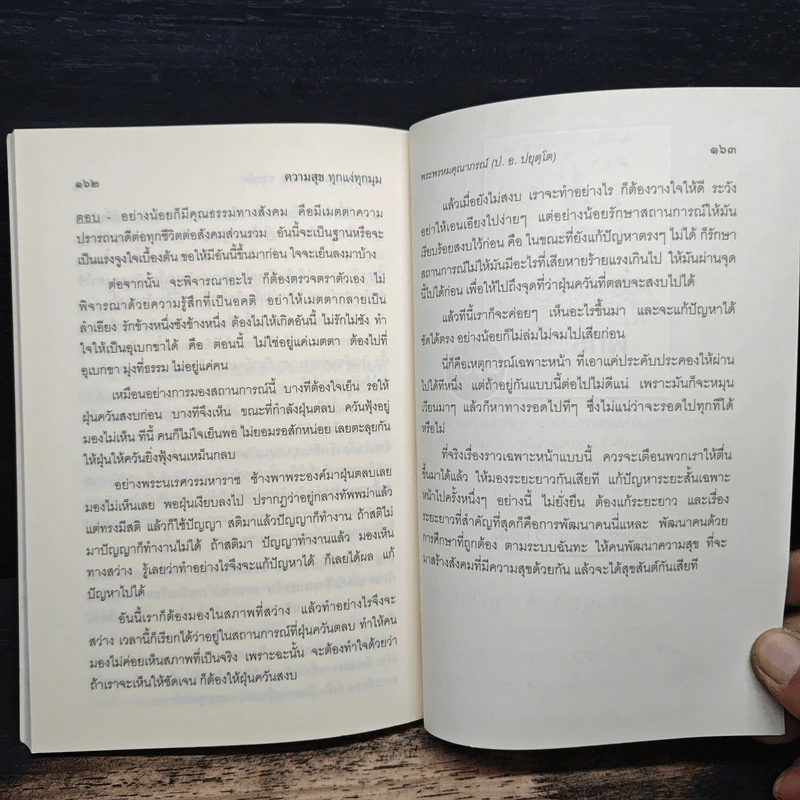 ๑๖๒ ความสุข ทุกแง่ทุกมุม
ตอบ - อย่างน้อยก็มีคุณธรรมทางสังคม คือมีเมตตาความ
ปรารถนาดีต่อทุกชีวิตต่อสังคมส่วนรวม อันนี้จะเป็นฐานหรือจะ
เป็นแรงจูงใจเบื้องต้น ขอให้มีอันนี้ขึ้นมาก่อน ใจจะเย็นลงมาบ้าง
ต่อจากนั้น จะพิจารณาอะไร ก็ต้องตรวจตราตัวเอง ไม่
พิจารณาด้วยความรู้สึกที่เป็นอคติ อย่าให้เมตตากลายเป็น
ลำเอียง รักข้างหนึ่งชังข้างหนึ่ง ต้องไม่ให้เกิดอันนี้ ไม่รักไม่ชัง ทำ
ใจให้เป็นอุเบกขาได้ คือ ตอนนี้ ไม่ใช่อยู่แค่เมตตา ต้องไปที่
อุเบกขา มุ่งที่ธรรม ไม่อยู่แค่คน
เหมือนอย่างการมองสถานการณ์นี้ บางทีต้องใจเย็น รอให้
ฝุ่นควันสงบก่อน บางทีจึงเห็น ขณะที่กำลังฝุ่นตลบ ควันฟุ้งอยู่
มองไม่เห็น ทีนี้ คนก็ไม่ใจเย็นพอ ไม่ยอมรอสักหน่อย เลยตะลุยกัน
ให้ฝุ่นให้ควันยิ่งฟุ้งจนเหม็นกลบ
อย่างพระนเรศวรมหาราช ช้างพาพระองค์มาฝุ่นตลบเลย
มองไม่เห็นเลย พอฝุ่นเงียบลงไป ปรากฏว่าอยู่กลางทัพพม่าแล้ว
แต่ทรงมีสติ แล้วก็ใช้ปัญญา สติมาแล้วปัญญาก็ทำงาน ถ้าสติไม่
มาปัญญาก็ทำงานไม่ได้ ถ้าสติมา ปัญญาทำงานแล้ว มองเห็น
ทางสว่าง รู้เลยว่าทำอย่างไรจึงจะแก้ปัญหาได้ ก็เลยได้ผล แก้
ปัญหาไปได้
อันนี้เราก็ต้องมองในสภาพที่สว่าง แล้วทำอย่างไรจึงจะ
สว่าง เวลานี้ก็เรียกได้ว่าอยู่ในสถานการณ์ที่ฝุ่นควันตลบ ทำให้คน
มองไม่ค่อยเห็นสภาพที่เป็นจริง เพราะฉะนั้น จะต้องทำใจด้วยว่า
ถ้าเราจะเห็นให้ชัดเจน ก็ต้องให้ฝุ่นควันสงบ
พระพรหมคุณาภรณ์ (ป. อ. ปยุตฺโต) ๑๖๓
แล้วเมื่อยังไม่สงบ เราจะทำอย่างไร ก็ต้องวางใจให้ดี ระวัง
อย่าให้เอนเอียงไปง่ายๆ แต่อย่างน้อยรักษาสถานการณ์ให้มัน
เรียบร้อยสงบไว้ก่อน คือ ในขณะที่ยังแก้ปัญหาตรงๆ ไม่ได้ ก็รักษา
สถานการณ์ไม่ให้มันมีอะไรที่เสียหายร้ายแรงเกินไป ให้มันผ่านจุด
นี้ไปได้ก่อน เพื่อให้ไปถึงจุดที่ว่าฝุ่นควันที่ตลบจะสงบไปได้
แล้วทีนี้เราก็จะค่อยๆ เห็นอะไรขึ้นมา และจะแก้ปัญหาได้
ชัดได้ตรง อย่างน้อยก็ไม่ล่มไม่จมไปเสียก่อน
นี่ก็คือเหตุการณ์เฉพาะหน้า ที่เอาแค่ประคับประคองให้ผ่าน
ไปได้ทีหนึ่ง แต่ถ้าอยู่กันแบบนี้ต่อไปไม่ดีแน่ เพราะมันก็จะหมุน
เวียนมาๆ แล้วก็หาทางรอดไปทีๆ ซึ่งไม่แน่ว่าจะรอดไปทุกทีได้
หรือไม่
ที่จริงเรื่องราวเฉพาะหน้าแบบนี้ ควรจะเตือนพวกเราให้ตื่น
ขึ้นมาได้แล้ว ให้มองระยะยาวกันเสียที แก้ปัญหาระยะสั้นเฉพาะ
หน้าไปครั้งหนึ่งๆ อย่างนี้ ไม่ยั่งยืน ต้องแก้ระยะยาว และเรื่อง
ระยะยาวที่สำคัญที่สุดก็คือการพัฒนาคนนี่แหละ พัฒนาคนด้วย
การศึกษาที่ถูกต้อง ตามระบบฉันทะ ให้คนพัฒนาความสุข ที่จะ
มาสร้างสังคมที่มีความสุขด้วยกัน แล้วจะได้สุขสันต์กันเสียที